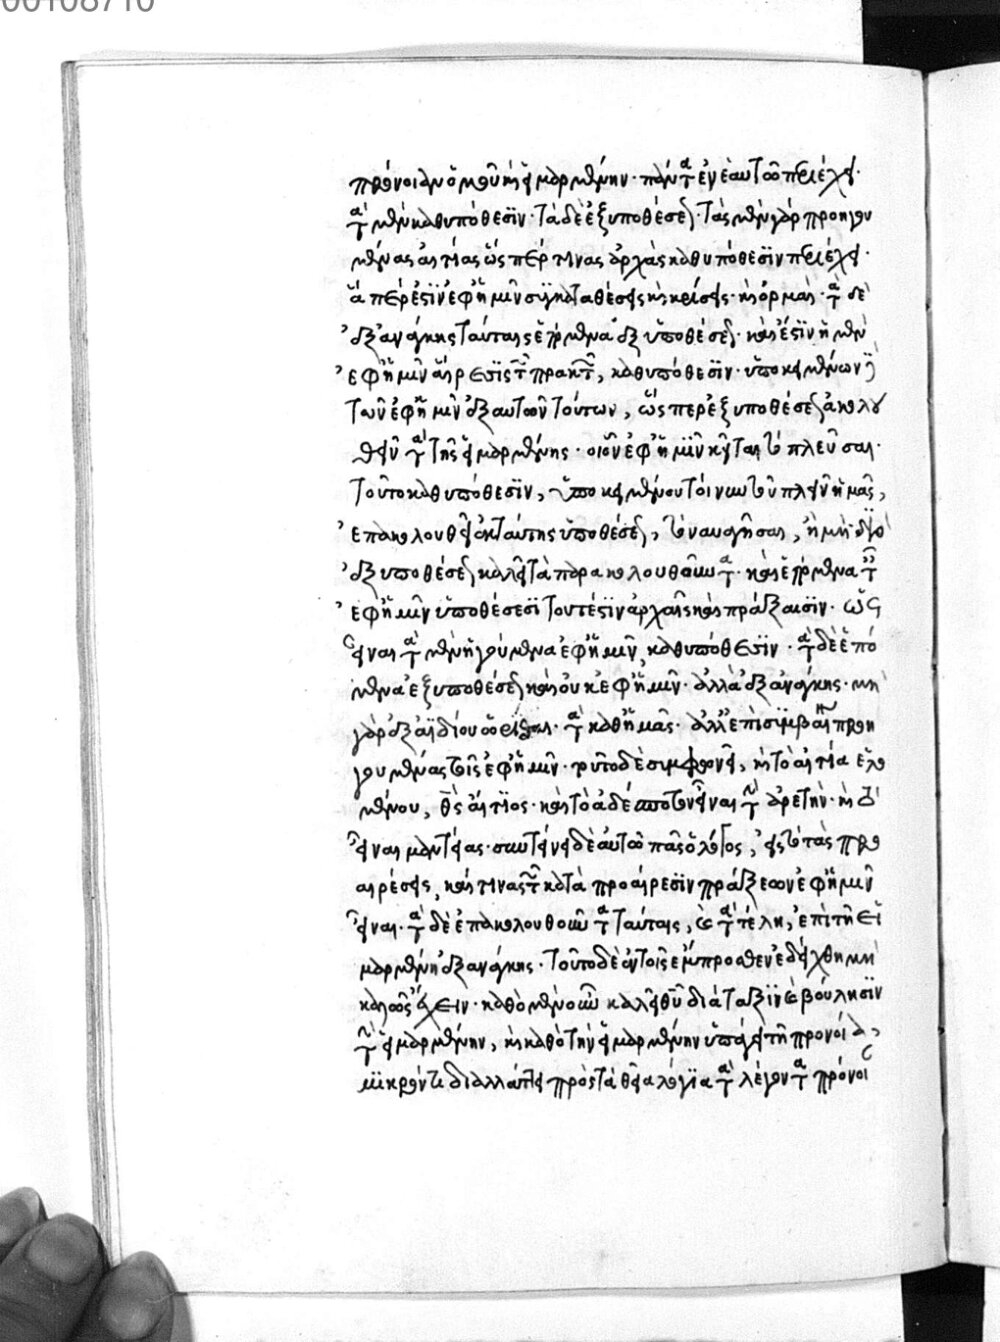 00108710
πρόνοιαν ὁμοῦ κ(αὶ) εἱμαρμένην· πάντα ἐν ἑαυτῶ περιέχει·
τὰ μὲν καθυπόθεσϊν· τὰ δὲ ἐξυποθέσεως· τὰς μὲν γὰρ προηγου
μένας αἰτίας ὥσπέρ τινας ἀρχὰς καθυπόθεσϊν περιέχει·
ἅπέρ ἐσϊν ἐφ' ἡμῖν συγκαταθέσεις κ(αὶ) κρίσεις· κ(αὶ) ὁρμαὶ· τὰ δὲ
ἐξανάγκης ταύταις ἑπόμενα ἐξ ὑποθέσεως· καὶ ἔσϊν ἡ μὲν
ἐφ' ἡμῖν αἵρεσϊς τῶν πρακτῶν, καθυπόθεσϊν· ὑποκειμένων
τῶν ἐφ' ἡμῖν ἐξ αὐτῶν τούτων, ὥσπερ ἐξυποθέσεως ἀκολου
θεῖν τὰ τῆς εἱμαρμένης· οἷον ἐφ' ἡμῖν κεῖται τὸ πλεῦσαι·
τοῦτο καθυπόθεσϊν, ὑποκειμένου τοίνυν τοῦ πλεῖν ἡμᾶς,
ἐπακολουθεῖ ἐκ ταύτης ὑποθέσεως, τὸ ναυαγῆσαι, ἢ μὴ· διὸ
ἐξυποθέσεως καλεῖ τὰ παρακολουθοῦντα· καὶ ἑπόμενα τοῖς
ἐφ' ἡμῖν ὑποθέσεσϊ τουτέσϊν ἀρχαῖς καὶ πράξεσϊν· ὡς
εἶναι τὰ μὲν ἡγούμενα ἐφ' ἡμῖν, καθυπόθεσϊν· τὰ δὲ ἑπό
μενα ἐξυποθέσεως καὶ οὐκ ἐφ' ἡμῖν· ἀλλὰ ἐξανάγκης· μὴ
γὰρ ἐξ ἀϊδίου ὡρίσθαι· τὰ καθ' ἡμᾶς· ἀλλ' ἐπισϋμβαίνειν προη
γουμένας τοῖς ἐφ' ἡμῖν· τούτο δὲ συμφωνεῖ, κ(αὶ) τὸ αἰτία ἑλο
μένου, θεὸς ἀναίτϊος· καὶ τὸ ἀδέσποτον εἶναι τὴν ἀρετήν· κ(αὶ) τὸ
εἶναι μαντείας· συντείνει δὲ αὐτῶ πᾶς ὁ λόγος, εἰς τὸ τὰς προ
αιρέσεις, καί τινας τῶν κατὰ προαίρεσϊν πράξεων ἐφ' ἡμῖν
εἶναι· τὰ δὲ ἐπακολουθοῦντα ταύταις, κ(αὶ) τὰ τέλη, ἐπὶ τῆ εἱ
μαρμένη ἐξανάγκης· τοῦτο δὲ ἐν τοῖς ἔμπροσθεν ἐδείχθη μὴ
καλῶς ἔχειν· καθὸ μὲν οὖν καλεῖ θεοῦ διάταξϊν κ(αὶ) βούλησϊν
τὴν εἱμαρμένην, κ(αὶ) καθὸ τὴν εἱμαρμένην ὑπάγει τῆ προνοία,
μϊκρόν τι διαλλάττει πρὸς τὰ θεῖα λόγϊα τὰ λέγοντα πρόνοι